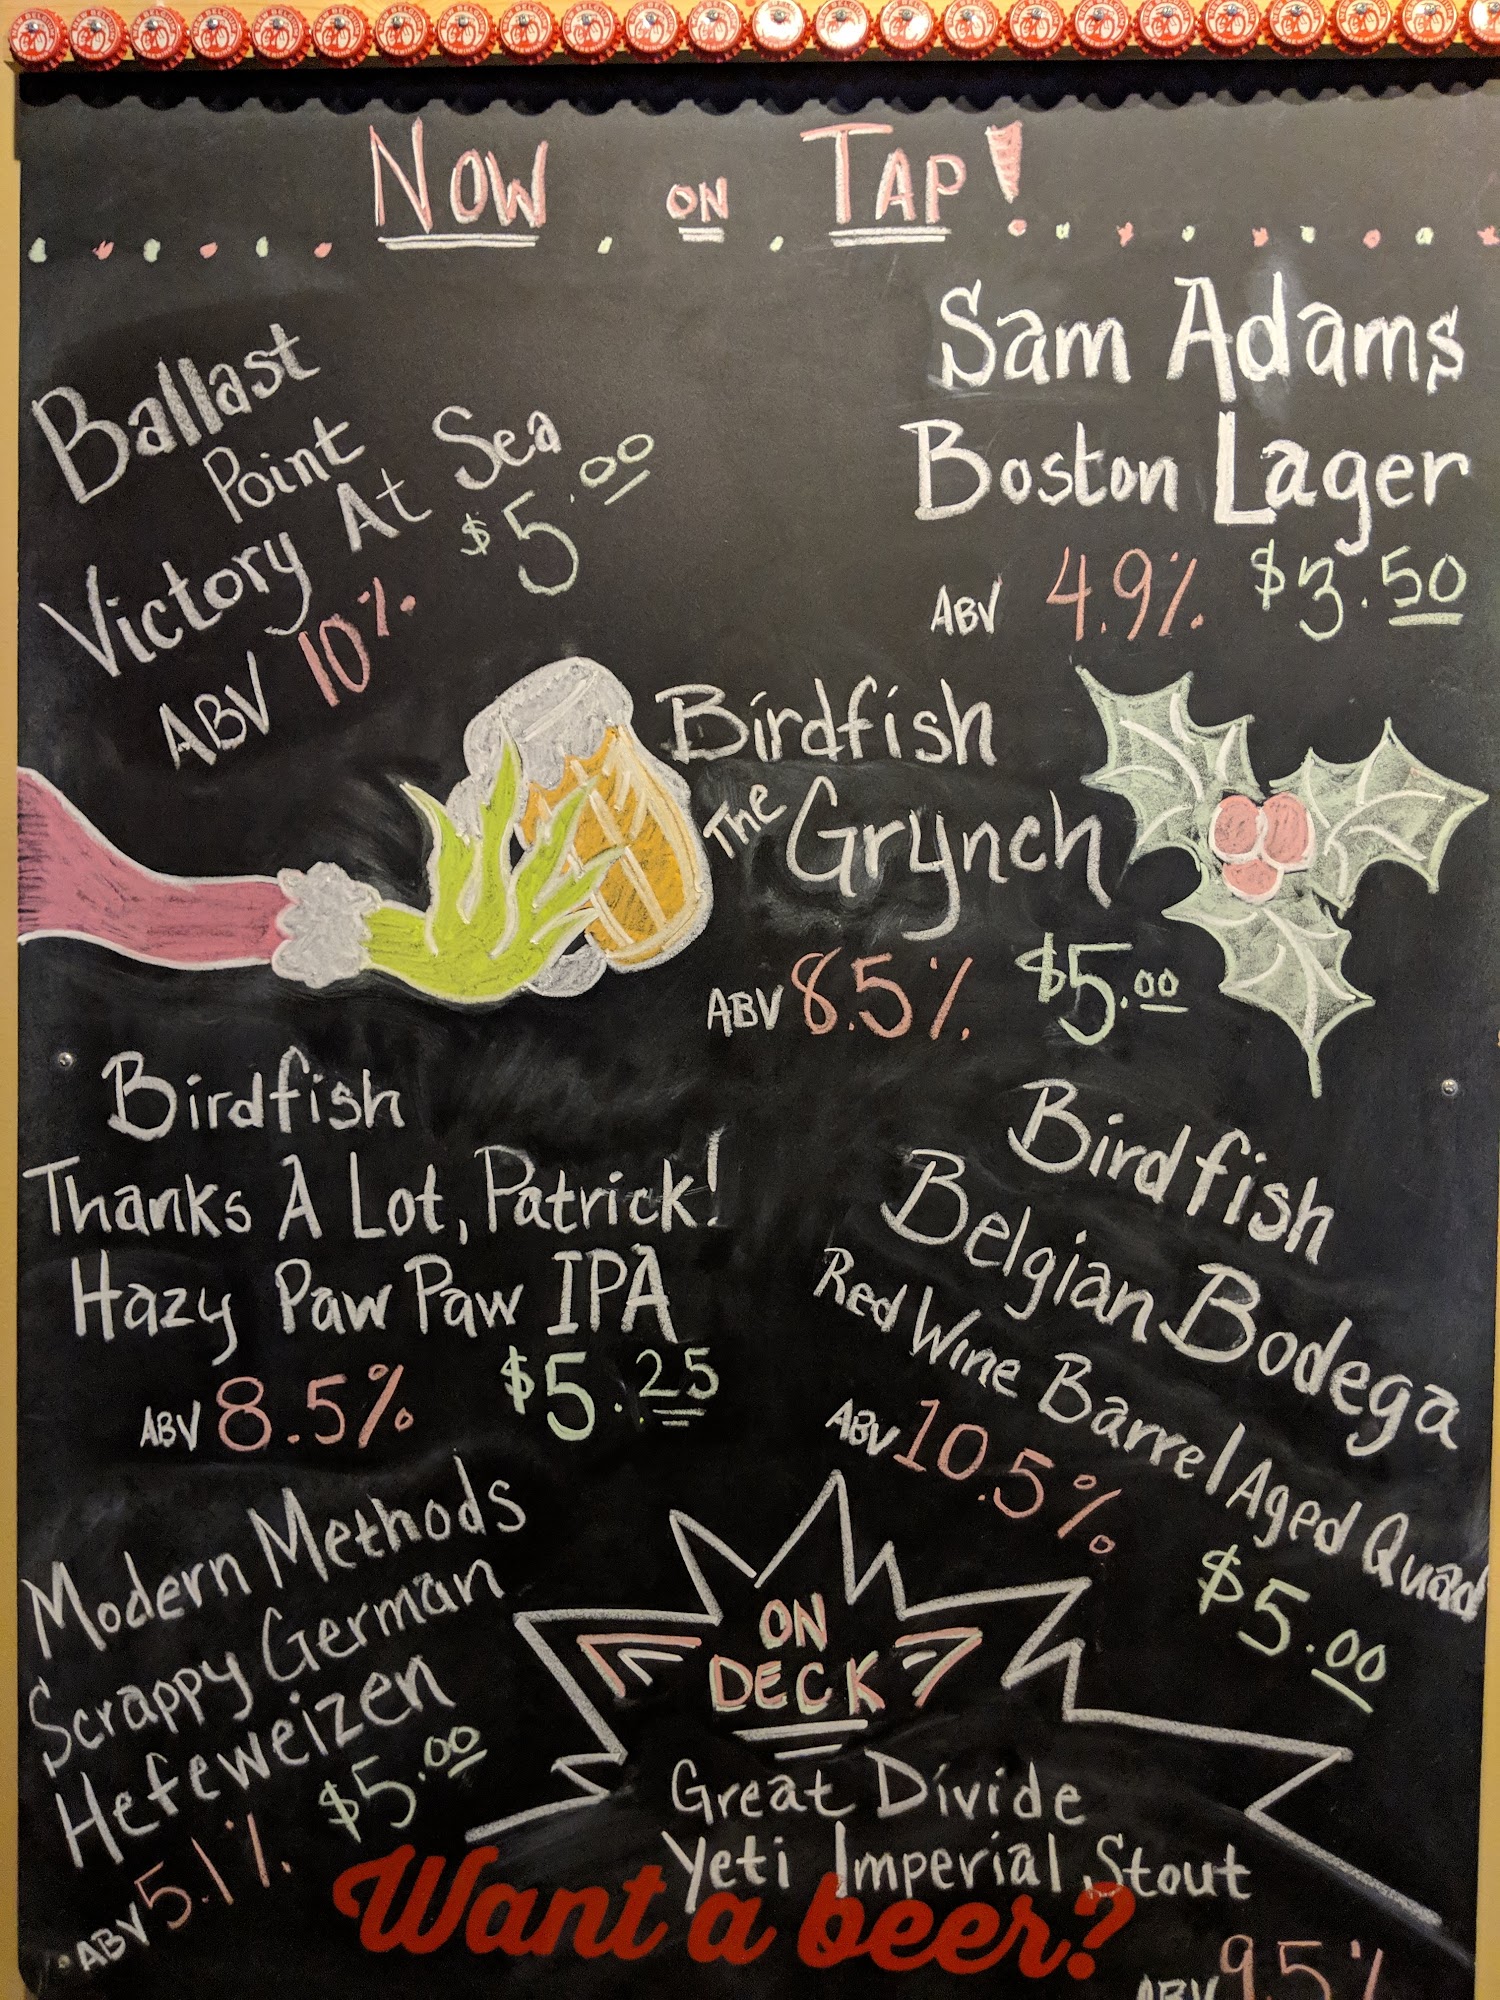 NOW ON TAP!
Ballast
Point
Victory At Sea
$5.00
ABV 10%
Sam Adams
Boston Lager
ABV 4.9% $3.50
Birdfish
The Grynch
ABV 8.5% $5.00
Birdfish
Thanks A Lot, Patrick!
Hazy Paw Paw IPA
ABV 8.5% $5.25
Birdfish
Belgian Bodega
Red Wine Barrel Aged Quad
ABV 10.5%
$5.00
Modern Methods
Scrappy German
Hefeweizen
$5.00
ABV 5.1%
ON
DECK
Great Divide
Yeti Imperial Stout
Want a beer?
ABV 9.5%